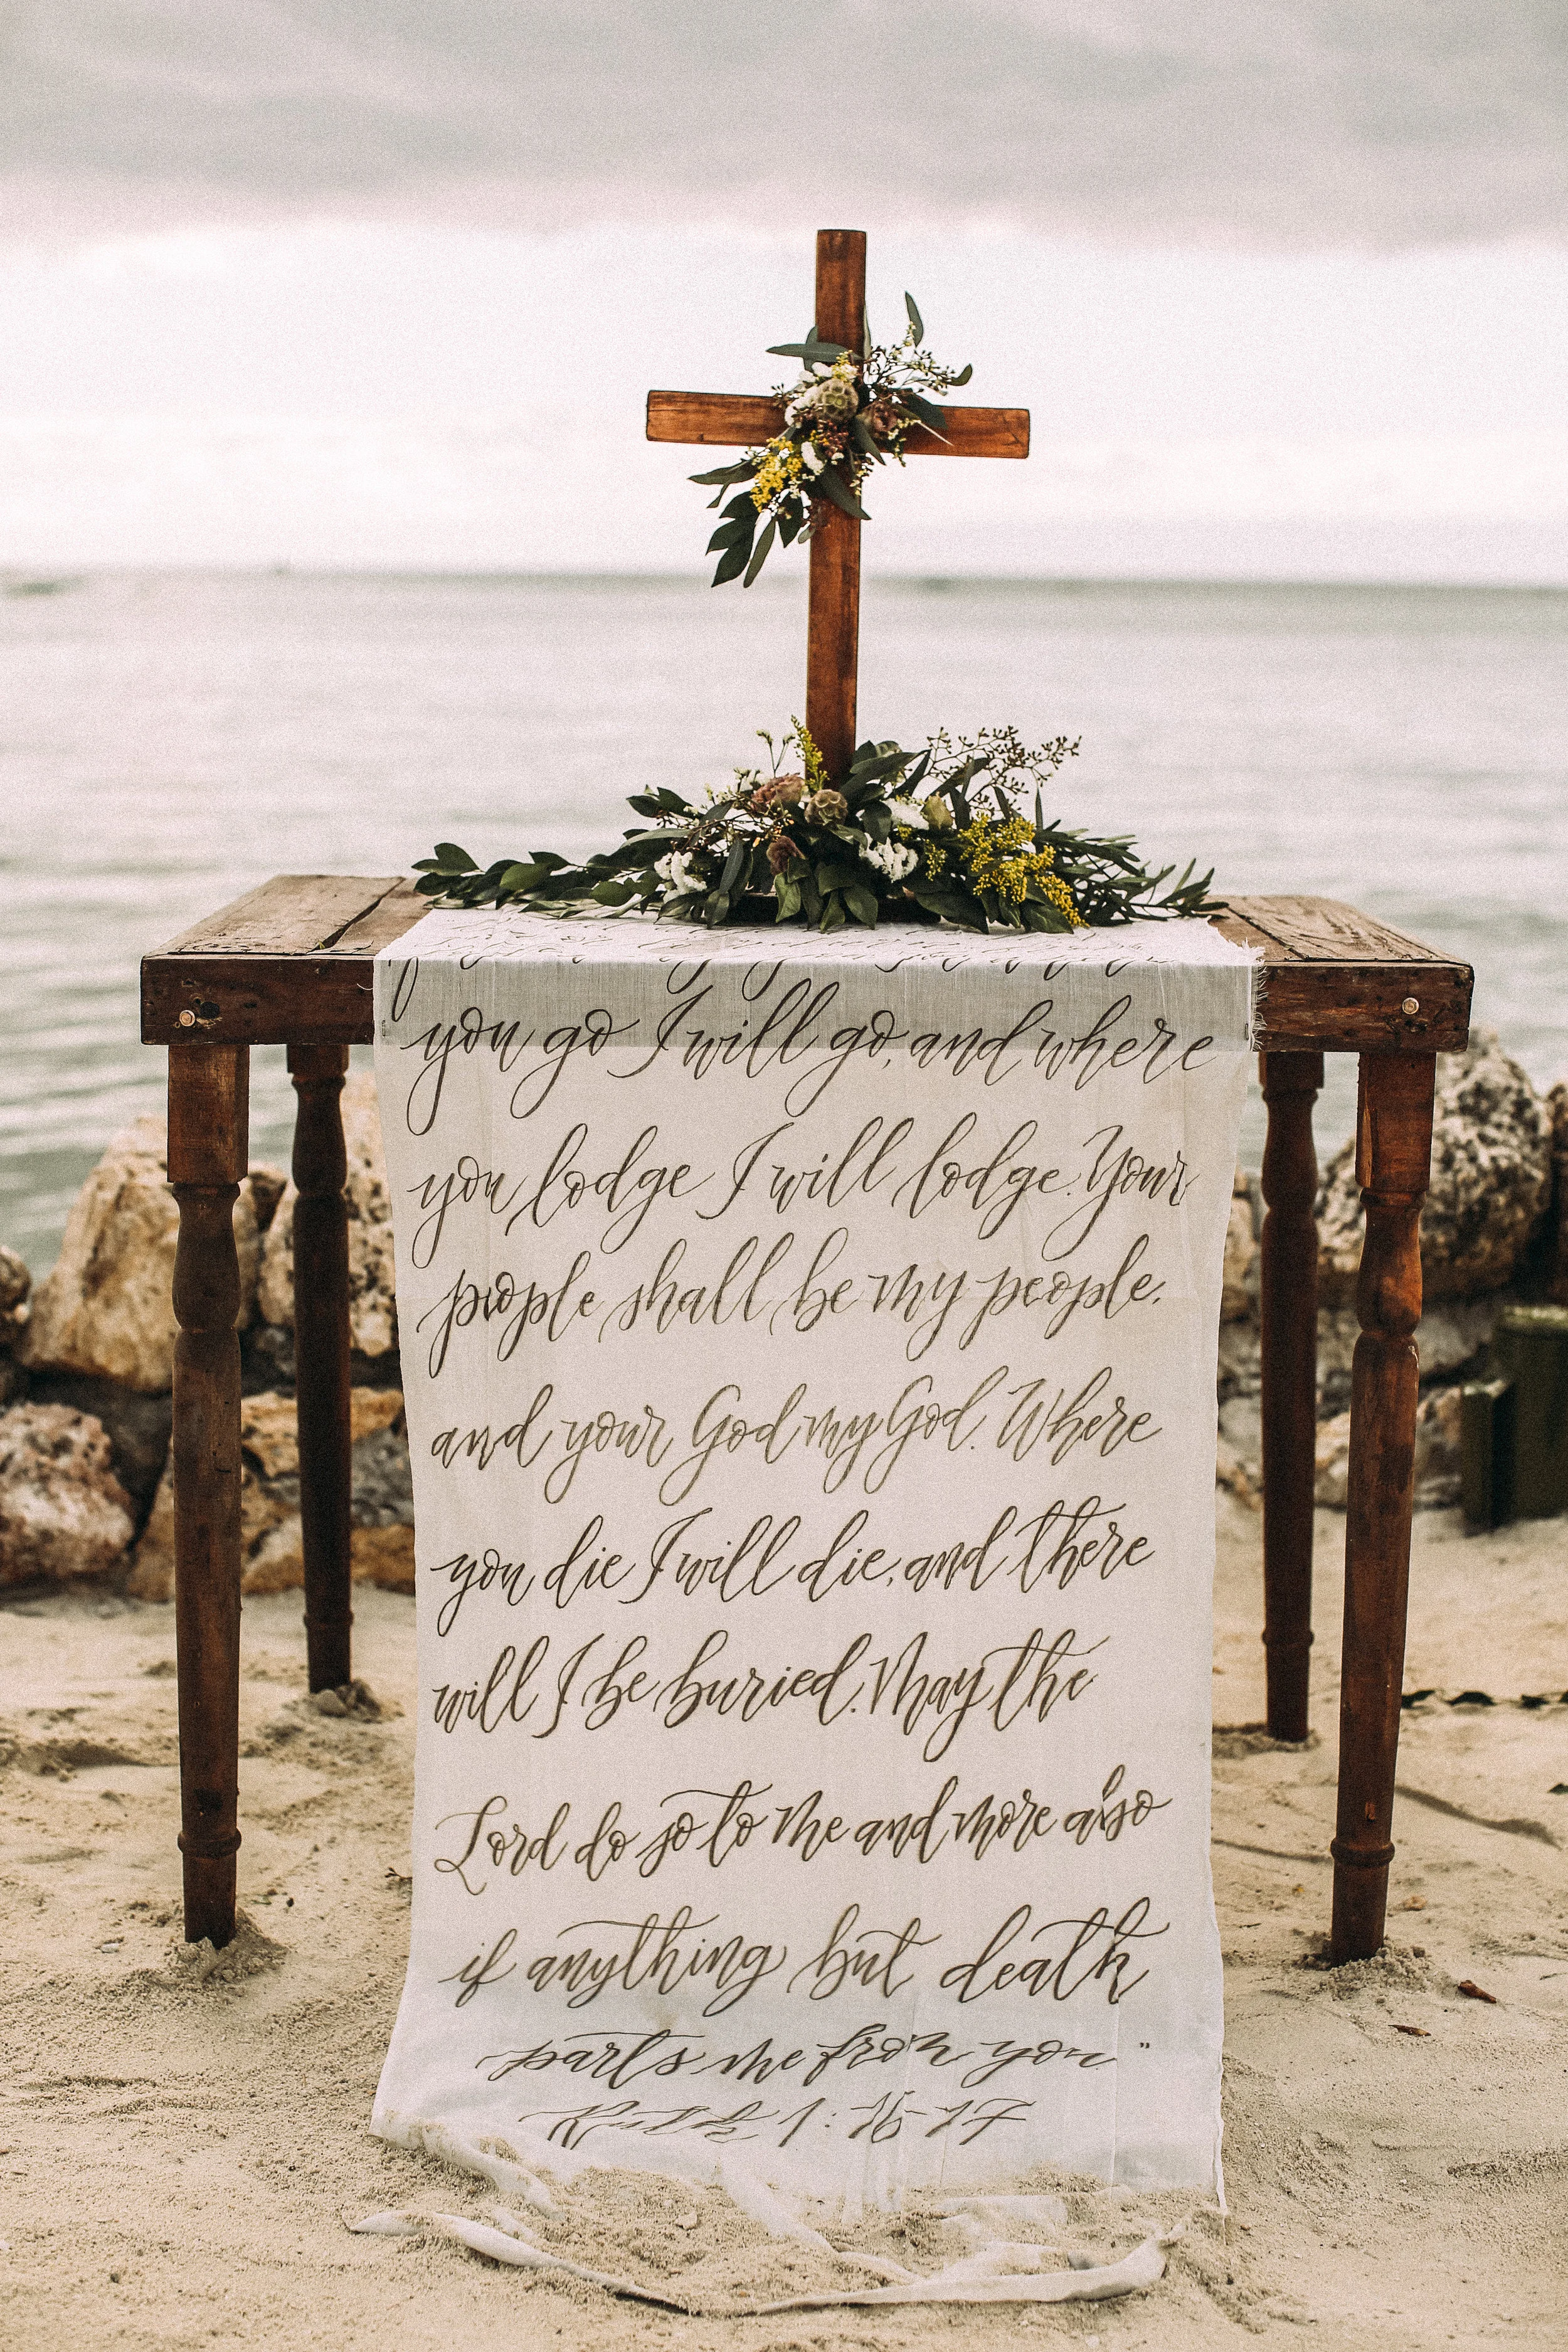 you go I will go, and where
you lodge I will lodge. Your
people shall be my people.
and your God my God. Where
you die I will die, and there
will I be buried. May the
Lord do so to me and more also
if anything but death
parts me from you."
Ruth 1:16-17